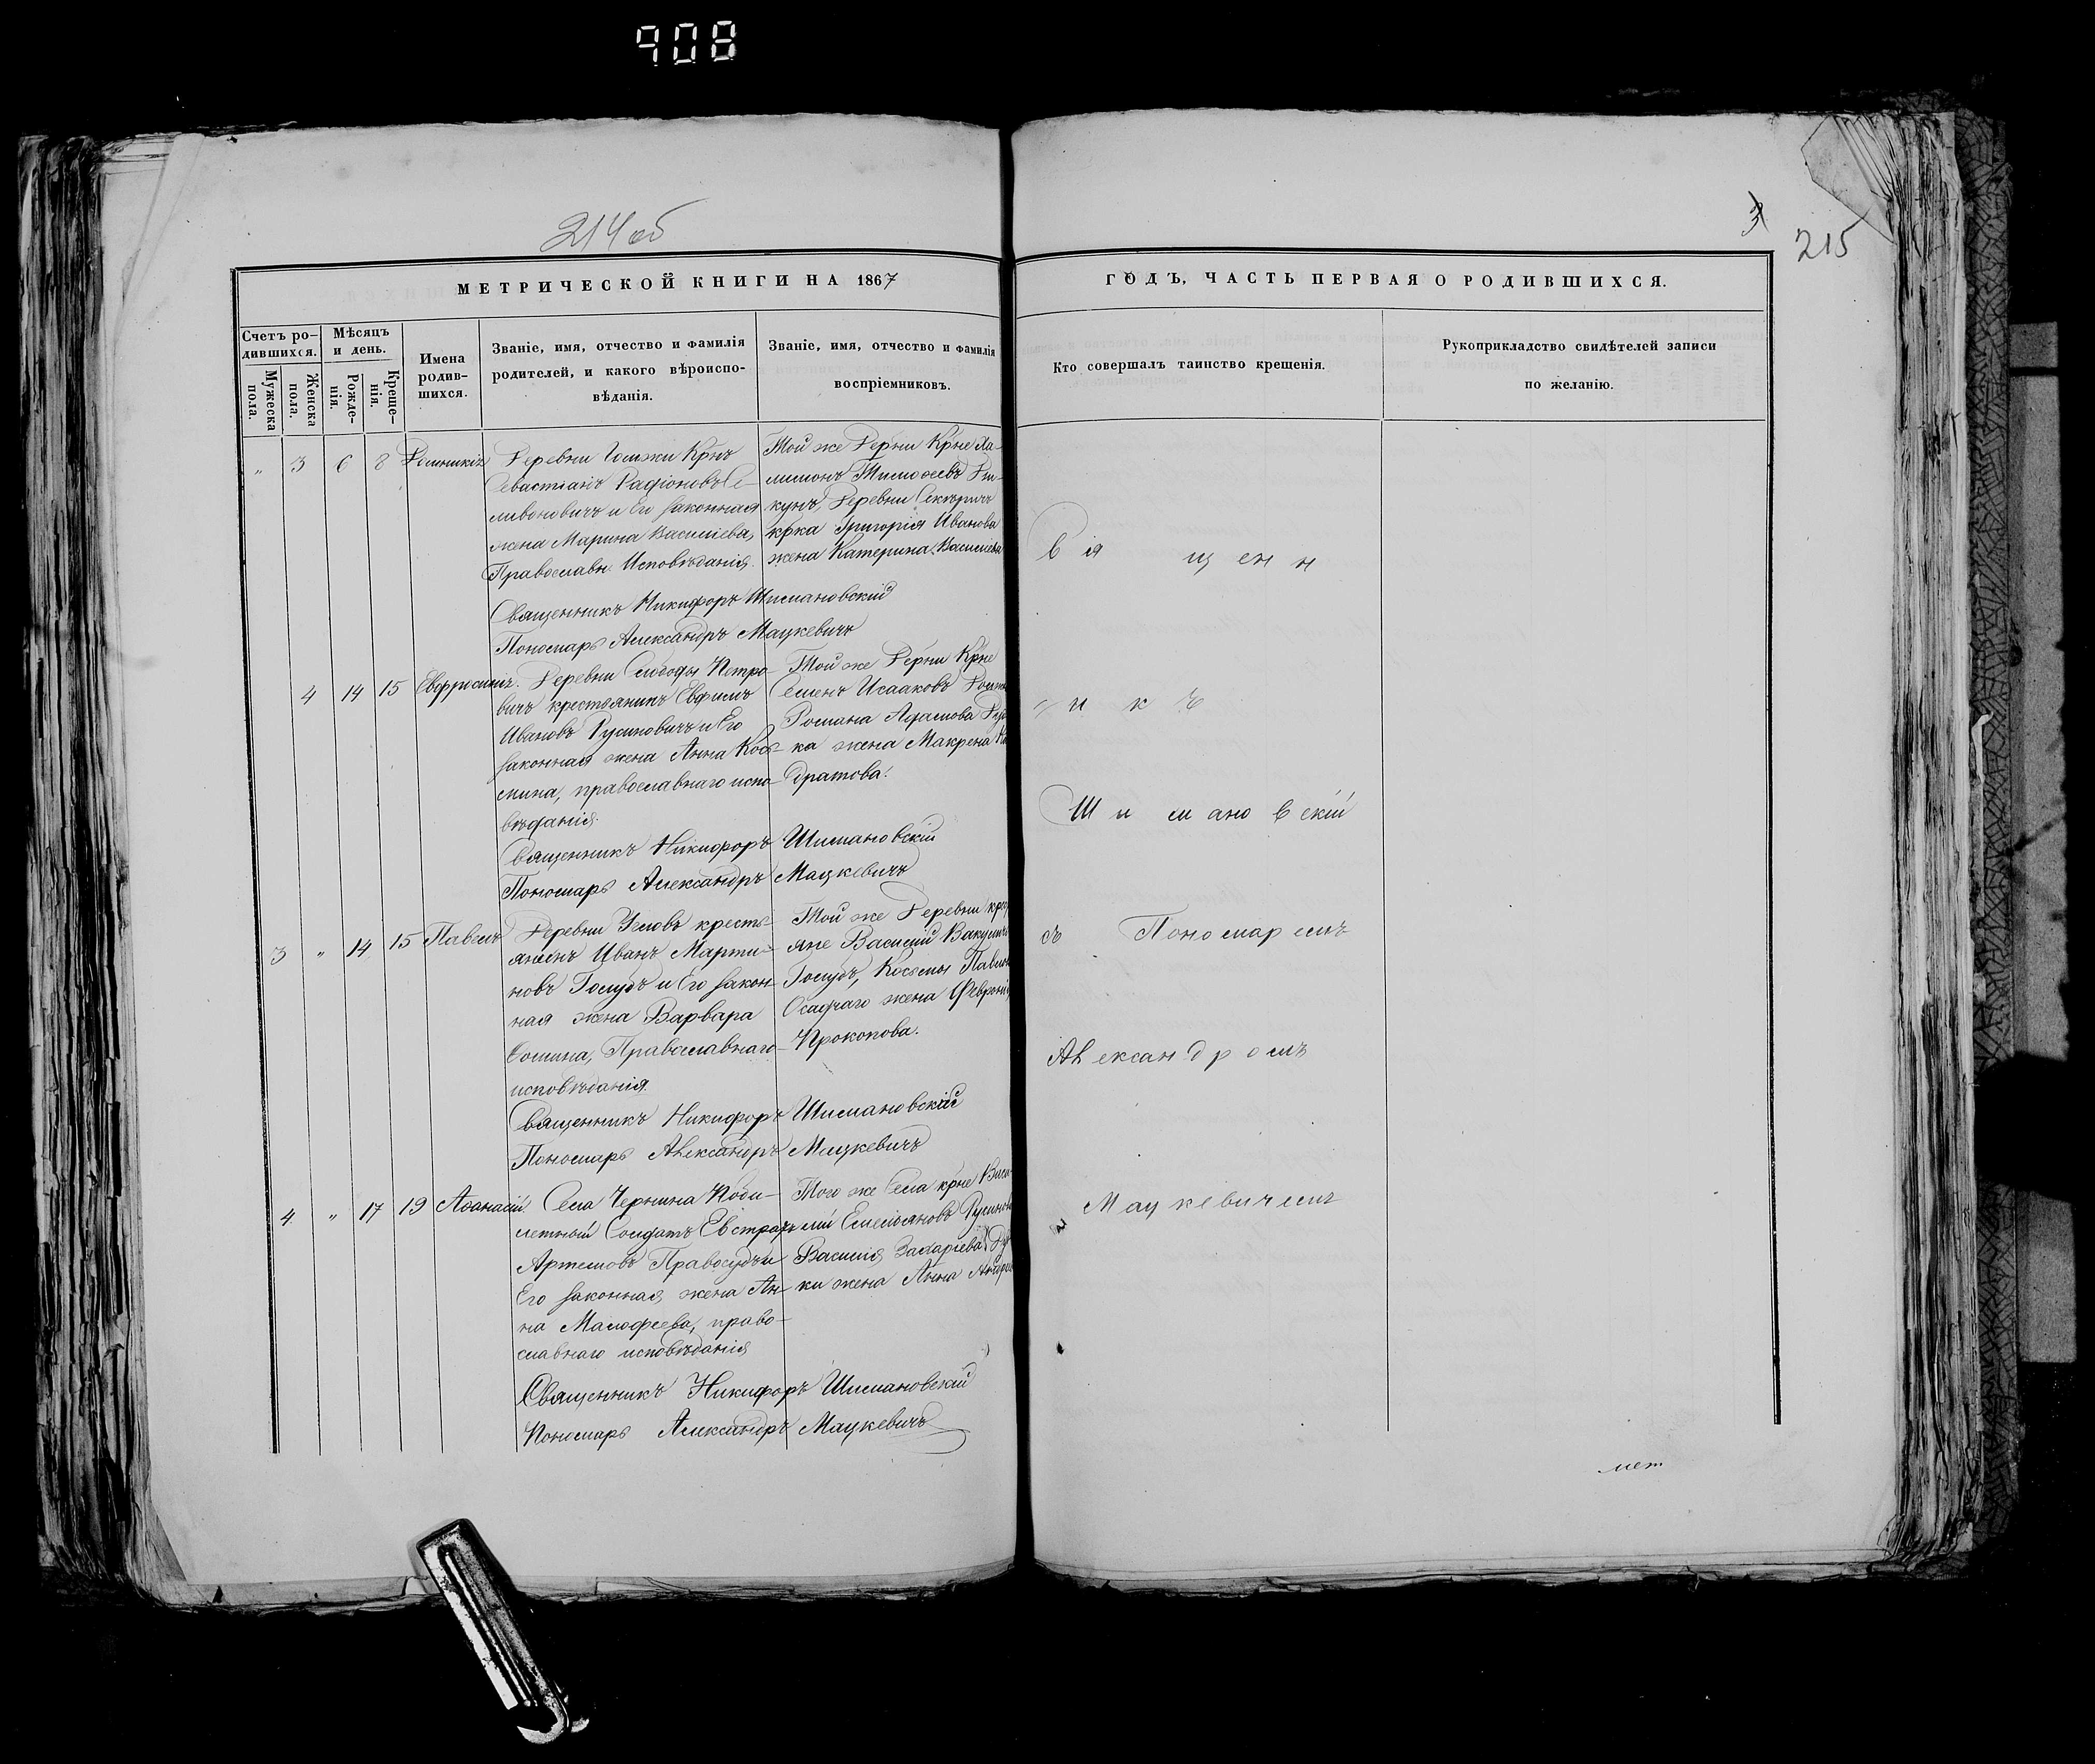 908
214 об
3
215
МЕТРИЧЕСКОЙ КНИГИ НА 1867
ГОДЪ, ЧАСТЬ ПЕРВАЯ О РОДИВШИХСЯ.
Счетъ ро-
дившихся.
Мужеска
пола.
Женска
пола.
Мѣсяцъ
и день.
Рожде-
нія.
Креще-
нія.
Имена
родив-
шихся.
Званіе, имя, отчество и фамилія
родителей, и какого вѣроиспо-
вѣданія.
Званіе, имя, отчество и фамилія
воспріемниковъ.
Кто совершалъ таинство крещенія.
Рукоприкладство свидѣтелей записи
по желанію.
„ 3 6 8
Деревни Крнъ
Севастіанъ Радіоновъ Се-
ливоновичъ и Его законная
жена Марина Василіева,
Православн. Исповѣданія.
Той же Дерни Крне
Тимоѳеевъ
Деревни
крка Григорія Иванова
жена Катерина Василіева
Священникъ Никифоръ Шимановскій
Пономарь Александръ Мацкевичъ
4 14 15
Деревни Слободы Петро-
вичъ крестьянинъ Евфимъ
Ивановъ Русиновичъ и Его
законная жена Анна Кось-
мина, православнаго испо-
вѣданія.
Той же Дерни Крне
Семенъ Исааковъ
Романа Адамова
ка жена Макрена
дратова.
Священникъ Никифоръ Шимановскій
Пономарь Александръ Мацкевичъ
3 „ 14 15 Павелъ
Деревни кресть-
янинъ Иванъ Марти-
новъ Голубъ и Его закон-
ная жена Варвара
Ѳомина, Православнаго
исповѣданія.
Той же Деревни крес
яне Василій
Голубъ, Косьмы
Осадчаго жена Февронія
Прокопова.
Священникъ Никифоръ Шимановскій
Пономарь Александръ Мацкевичъ
4 „ 17 19 Аѳанасій
Села Чернина
Солдатъ Евстрат
Артемовъ Правосудъ и
Его законная жена Ан-
на Малофеева, право-
славнаго исповѣданія
Того же Села крне Васи-
лій Емельяновъ
Василія Захаріева
ки жена Анна
Священникъ Никифоръ Шимановскій
Пономарь Александръ Мацкевичъ
в ія щ ен н
и к ъ
Ш и м ано в скій
съ Пономаремъ
Александромъ
Мацкевичемъ